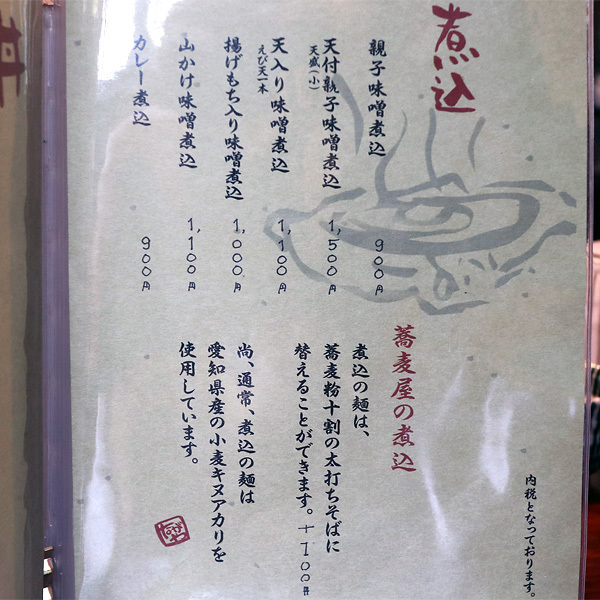 煮込
親子味噌煮込 900円
天付親子味噌煮込 1,500円
天盛(小)
天入り味噌煮込 1,100円
えび天一本
揚げもち入り味噌煮込 1,000円
山かけ味噌煮込 1,100円
カレー煮込 900円
蕎麦屋の煮込
煮込の麺は、
蕎麦粉十割の太打ちそばに
替えることができます。+100円
尚、通常、煮込の麺は
愛知県産の小麦キヌアカリを
使用しています。
内税となっております。
丼